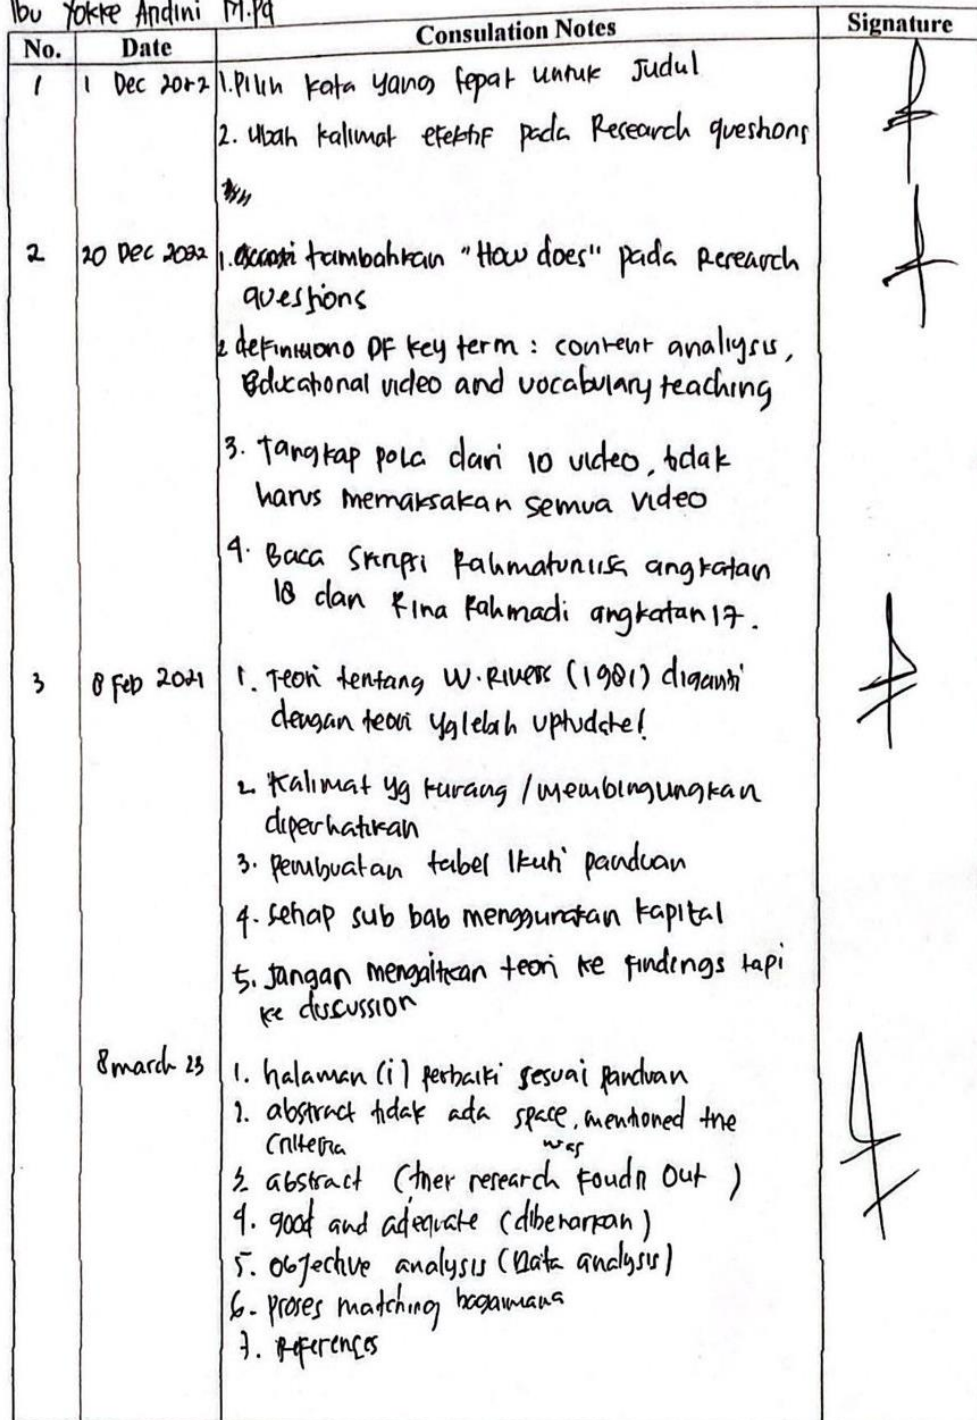 Ibu Yokke Andini M.Pd
No. Date Consulation Notes Signature
1 1 Dec 2022 1. Pilih kata yang tepat untuk Judul
2. Ubah kalimat efektif pada Research questions
2 20 Dec 2022 1. tambahkan "How does" pada Research
questions
2 definitiono OF key term : content analiysis,
Educational video and vocabulary teaching
3. Tangkap pola dari 10 video, tidak
harus memaksakan semua video
4. Baca Skripsi Rahmatunisa angkatan
18 dan Rina Rahmadi angkatan 17.
3 8 Feb 2021 1. Teori tentang W. Rivers (1981) diganti
dengan teori yg lebih uptudate!
2. Kalimat yg kurang / membingungkan
diperhatikan
3. pembuatan tabel Ikuti panduan
4. setiap sub bab menggunakan kapital
5. Jangan mengaitkan teori ke findings tapi
ke discussion
8 march 23 1. halaman (i) perbaiki sesuai panduan
2. abstract tidak ada space, mentioned the
criteria was
3. abstract (ther research Foudn Out )
4. good and adequate (dibenarkan)
5. objective analysis (Data analysis)
6. proses matching bagaimana
7. References